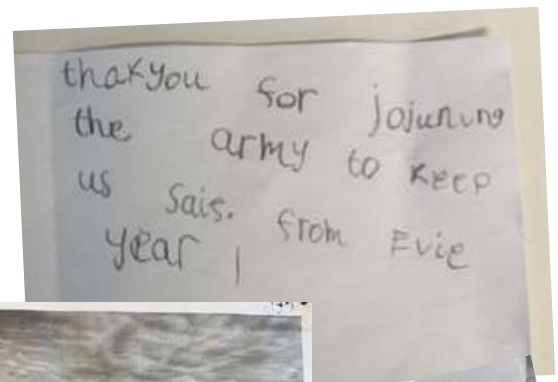 thakyou for jojuning
the army to keep
us sais. from Evie
year 1